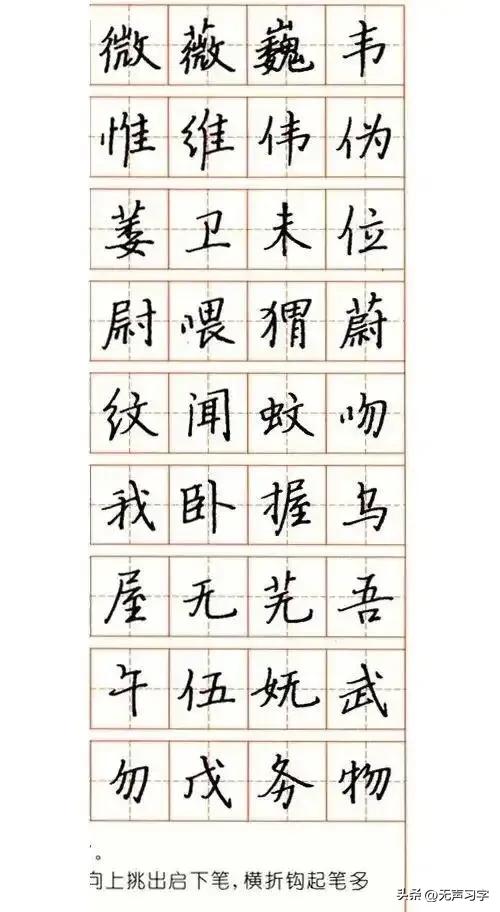 微薇巍韦
惟维伟伪
萎卫未位
尉喂猬蔚
纹闻蚊吻
我卧握乌
屋无芜吾
午伍妩武
勿戊务物
。
向上挑出启下笔,横折钩起笔多
头条@无声习字